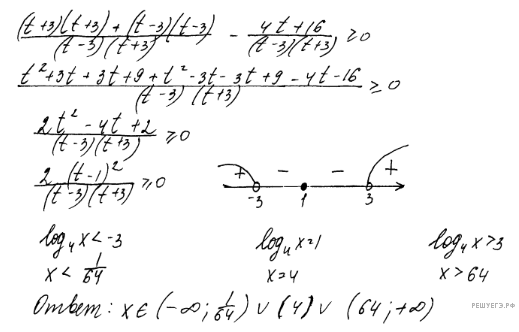 ((t+3)(t+3) + (t-3)(t-3))/((t-3)(t+3)) - (4t+16)/((t-3)(t+3)) ≥ 0
(t²+3t+3t+9+t²-3t-3t+9-4t-16)/((t-3)(t+3)) ≥ 0
(2t²-4t+2)/((t-3)(t+3)) ≥ 0
(2(t-1)²)/((t-3)(t+3)) ≥ 0
+ - - +
-3 1 3
log₄x<-3 log₄x=1 log₄x>3
x < 1/64 x=4 x>64
Ответ: x∈ (-∞; 1/64) ∪ (4) ∪ (64; +∞)
РЕШУЕГЭ.РФ